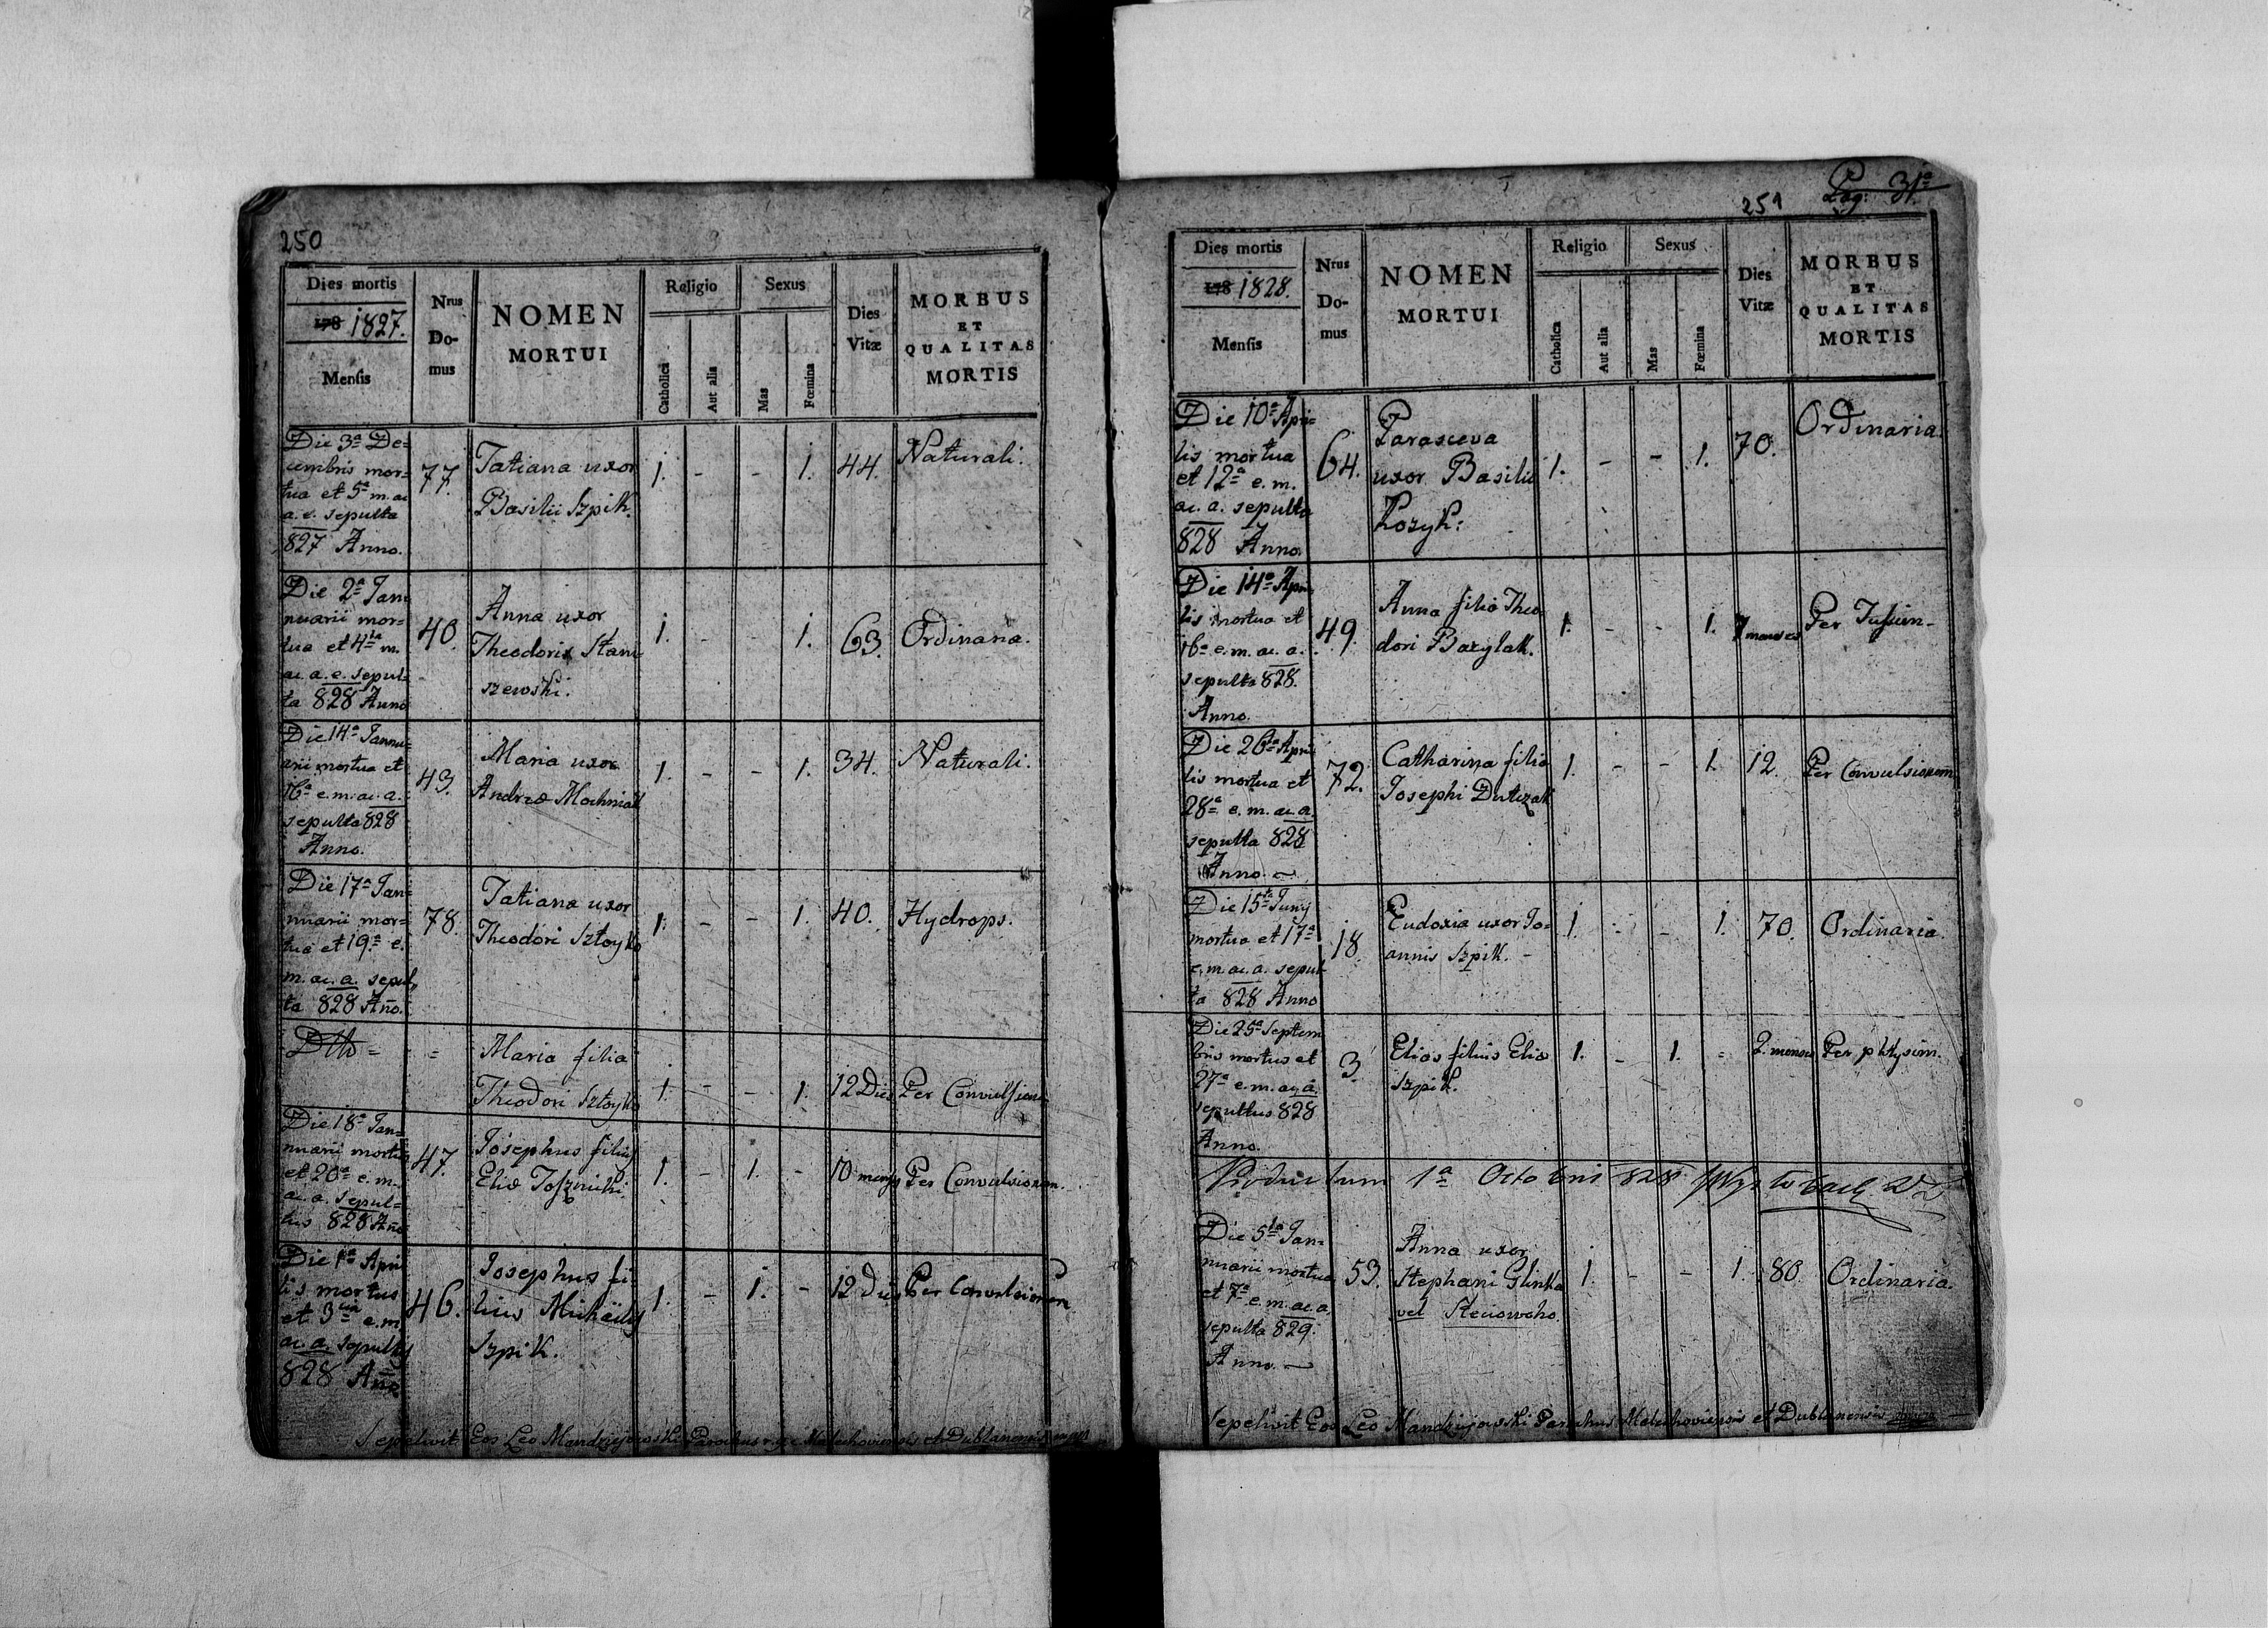 250
Dies mortis
178 1827.
Mensis
Nrus Do-mus
NOMEN MORTUI
Religio
Catholica
Aut alia
Sexus
Mas
Fœmina
Dies Vitæ
MORBUS ET QUALITAS MORTIS
Die 3ª De=
cembris mor=
tua et 5ª m. ac
a. e. sepulta
827 Anno.
77.
Tatiana uxor
Basilii Szpik.
1. - - 1. 44. Naturali.
Die 2ª Jan=
nuarii mor=
tua et 4ta m.
ac a. e. sepul=
ta 828 Anno
40.
Anna uxor
Theodoris Stani
szewski.
1. - - 1. 63. Ordinaria.
Die 14ª Jannu=
arii mortua et
16ª e. m. ac. a.
sepulta 828
Anno.
43.
Maria uxor
Andreæ Mochniak
1. - - 1. 34. Naturali.
Die 17ª Jan=
nuarii mor=
tua et 19ª e.
m. ac. a. sepul=
ta 828 Ano.
78.
Tatiana uxor
Theodori Sztoyko
1. - - 1. 40. Hydrops.
Dtto = =
Maria filia
Theodori Sztoyko
1. - - 1. 12 Dies Per Convulsionem
Die 18ª Jan=
nuarii mortus
et 20ª e. m.
ac. a. sepul=
tus 828 Ano
47.
Josephus filius
Eliæ
1. - 1. - 10 menses Per Convulsionem.
Die 1ª Apri
lis mortus
et 3tia e. m
ac. a. sepultus
828 Ano
46.
Josephus fi
lius Michaelis
Szpik.
1. - 1. - 12 Dies Per Convulsionem
Sepelivit Eos Leo Mandzyjowski Parochus r. g. c. Malechoviensis et Dublanensis mpp
251
Pag: 31ª
Dies mortis
178 1828.
Mensis
Nrus Do-mus
NOMEN MORTUI
Religio
Catholica
Aut alia
Sexus
Mas
Fœmina
Dies Vitæ
MORBUS ET QUALITAS MORTIS
Die 10ª Apri=
lis mortua
et 12ª e. m.
ac. a. sepulta
828 Anno.
64.
Parasceva
uxor Basilii
Kozyk:
1. - - 1. 70. Ordinaria.
Die 14ª Apri
lis mortua et
16ª e. m. ac. a.
sepulta 828.
Anno.
49.
Anna filia Theo
dori Bazylak.
1. - - 1. 7 menses Per Tussim-
Die 26ta Apri
lis mortua et
28ª e. m. ac. a.
sepulta 828
Anno.
72.
Catharina filia
Josephi Dutczak
1. - - 1. 12. Per Convulsionem
Die 15ta Junij
mortua et 17ª
e. m. ac. a. sepul
ta 828 Anno
18.
Eudoxia uxor Jo=
annis Szpik. -
1. - - 1. 70. Ordinaria.
Die 25ª Septem
bris mortus et
27ª e. m. ac. a.
sepultus 828
Anno.
3.
Elias filius Eliæ
Szpik.
1. - 1. = 2. menses Per phtysim.
Productum 1ª Octobris 828
Die 5ta Jan=
nuarii mortua
et 7ª e. m. ac. a
sepulta 829.
Anno.
53.
Anna uxor
Stephani Glinka
vel Steciowoho.
1. - - 1. 80. Ordinaria.
Sepelivit Eos Leo Mandzyjowski Parochus Malechoviensis et Dublanensis mpp